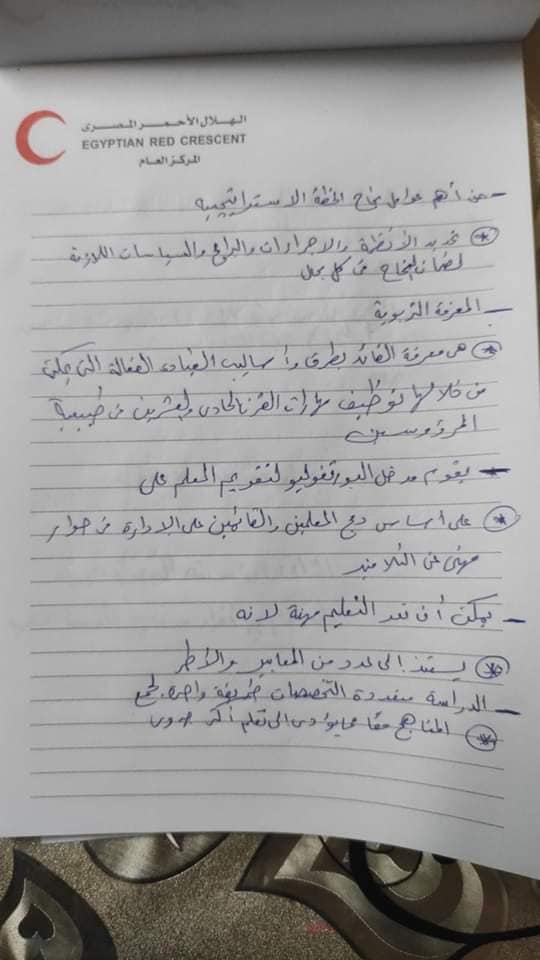 الهلال الأحمر المصرى
EGYPTIAN RED CRESCENT
المركز العام
- من أهم عوامل نجاح الخطة الاستراتيجية
* تحديد الأنظمة والاجراءات والبرامج والسياسات اللازمة
لضمان النجاح فى كل مجال
- المعرفة التربوية
* هى معرفة القائد بطرق وأساليب القيادة الفعالة التى يمكن
من خلالها توظيف مهارات القرن الحادى والعشرين فى طبيعة
المرؤوسين
- يقوم مدخل البورتفوليو لتقويم المعلم على
* على أساس دمج المعلمين والقائمين على الادارة فى حوار
مهنى عن التلاميذ
- يمكن أن نعد التعليم مهنة لانه
* يستند الى عدد من المعايير والأطر
- الدراسة متعددة التخصصات طريقة واحدة لجمع
* المناهج معًا مما يؤدى الى تعلم أكثر